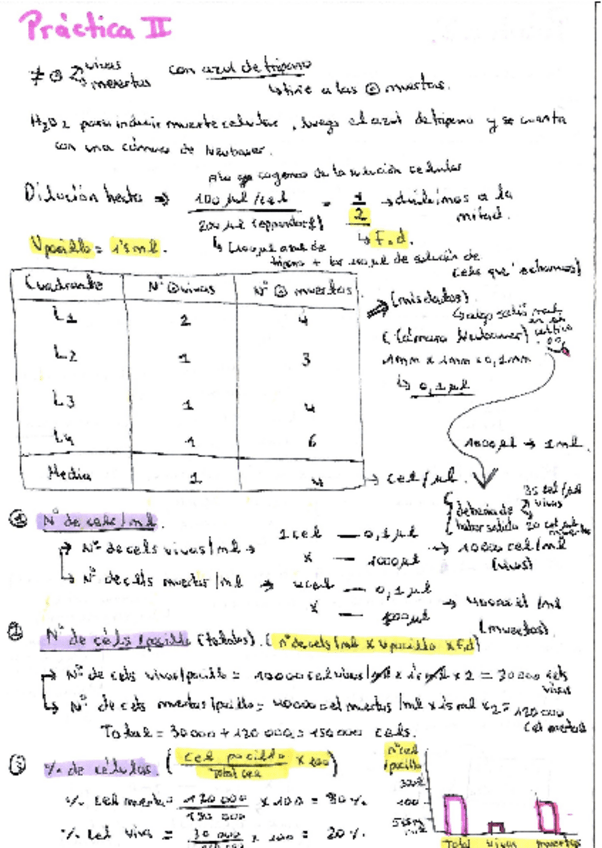 Práctica II
≠ Θ 2 vivas
muertas
con azul de tripano
↳ tiñe a las Θ muertas.
H2O2 para inducir muerte celular, luego el azul de tripano y se cuenta
con una cámara de Neubauer.
cogemos de la solución celular
Dilución hecha ⇒ 100 µl/cel = 1 → dividimos a la
200 µl (eppendorf) 2 mitad.
↳ F.d.
Vpocillo = 1'5 ml.
↳ (100 µl azul de
tripano + los 100 µl de solución de
cels que echamos)
Cuadrante Nº Θ vivas Nº Θ muertas
L1 2 4
L2 1 3
L3 1 4
L4 1 6
Media 1 4 → cel/µl.
⇒ (mis datos)
↳ algo salió mal
en el
cultivo
(Cámara Neubauer)
1mm x 1mm x 0,1mm
↳ 0,1 µl
1000 µl → 1 ml.
debería de
haber salido
35 cel/µl
vivas
20 cel/µl
muertas
① Nº de cels/ml.
→ Nº de cels vivas/ml → 1 cel — 0,1 µl
x — 1000 µl → 10000 cel/ml
(vivas)
↳ Nº de cels muertas/ml → 4 cel — 0,1 µl
x — 1000 µl → 40000 cel/ml
(muertas).
② Nº de céls/pocillo (totales). (nº de cels/ml x Vpocillo x F.d)
→ Nº de cels vivas/pocillo = 10000 cel vivas/ml x 1'5 ml x 2 = 30000 cels
vivas
↳ Nº de cels muertas/pocillo = 40000 cel muertas/ml x 1'5 ml x 2 = 120000
cel muertas
Total = 30000 + 120000 = 150000 cels.
③ % de células. ( cel pocillo x 100 )
Total cel
% cel muertas = 120 000 x 100 = 80 %.
150 000
% cel vivas = 30 000 x 100 = 20 %.
nº cel
/pocillo
100
Total vivas muertas